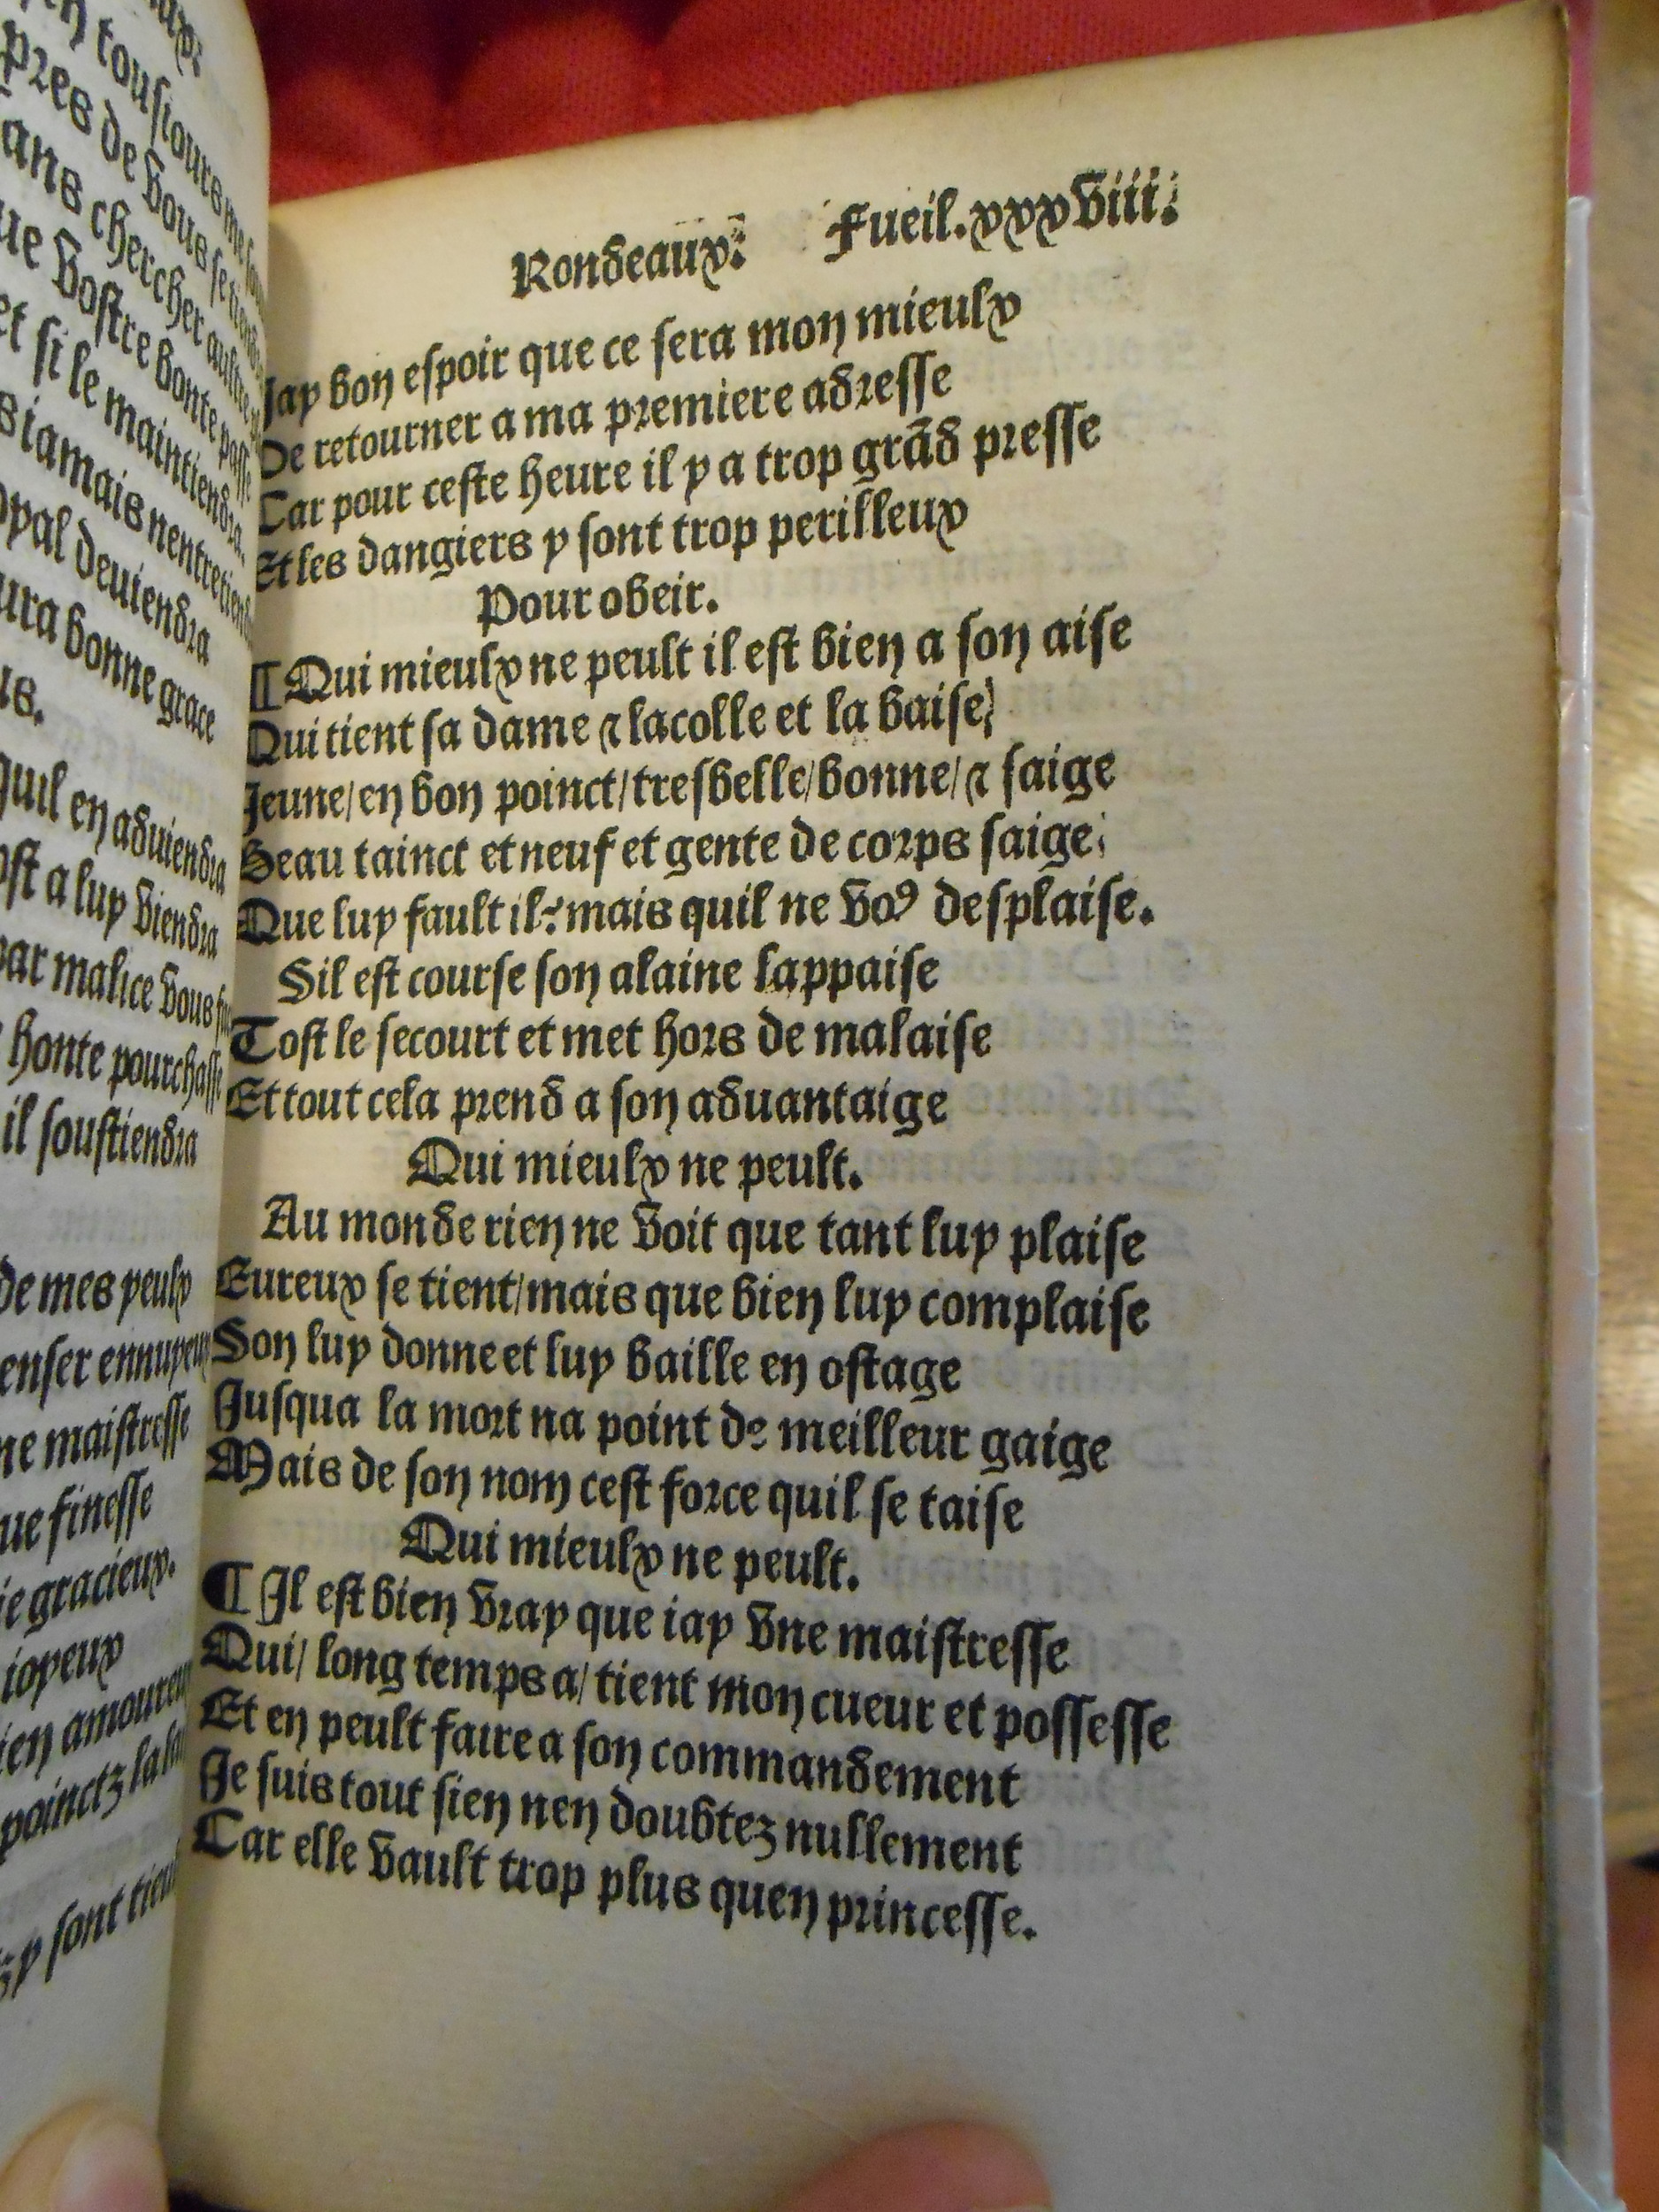 uy:
en tousiours me
pres de vous se tiendra
ans chercher aultre
ue vostre bonte passe
et si le maintiendra.
s iamais nentretiendra
oyal deuiendra
ura bonne grace
us.
Quil en aduiendra
ost a luy viendra
par malice vous
honte pourchasse
il soustiendra
de mes yeulx
enser ennuyeux
ne maistresse
ue finesse
ie gracieux.
ioyeux
ien amoureux
poinctz la
y sont
Rondeaux: Fueil.xxxviii:
Jay bon espoir que ce sera mon mieulx
De retourner a ma premiere adresse
Car pour ceste heure il y a trop grãd presse
Et les dangiers y sont trop perilleux
Pour obeir.
¶ Qui mieulx ne peult il est bien a son aise
Qui tient sa dame ⁊ lacolle et la baise:
Jeune/en bon poinct/tresbelle/bonne/⁊ saige
Beau tainct et neuf et gente de corps saige:
Que luy fault il? mais quil ne voꝰ desplaise.
Sil est course son alaine lappaise
Tost le secourt et met hors de malaise
Et tout cela prend a son aduantaige
Qui mieulx ne peult.
Au monde rien ne voit que tant luy plaise
Eureux se tient/mais que bien luy complaise
Son luy donne et luy baille en ostage
Jusqua la mort na point de meilleur gaige
Mais de son nom cest force quil se taise
Qui mieulx ne peult.
¶ Il est bien vray que iay vne maistresse
Qui/ long temps a/ tient mon cueur et possesse
Et en peult faire a son commandement
Je suis tout sien nen doubtez nullement
Car elle vault trop plus quen princesse.